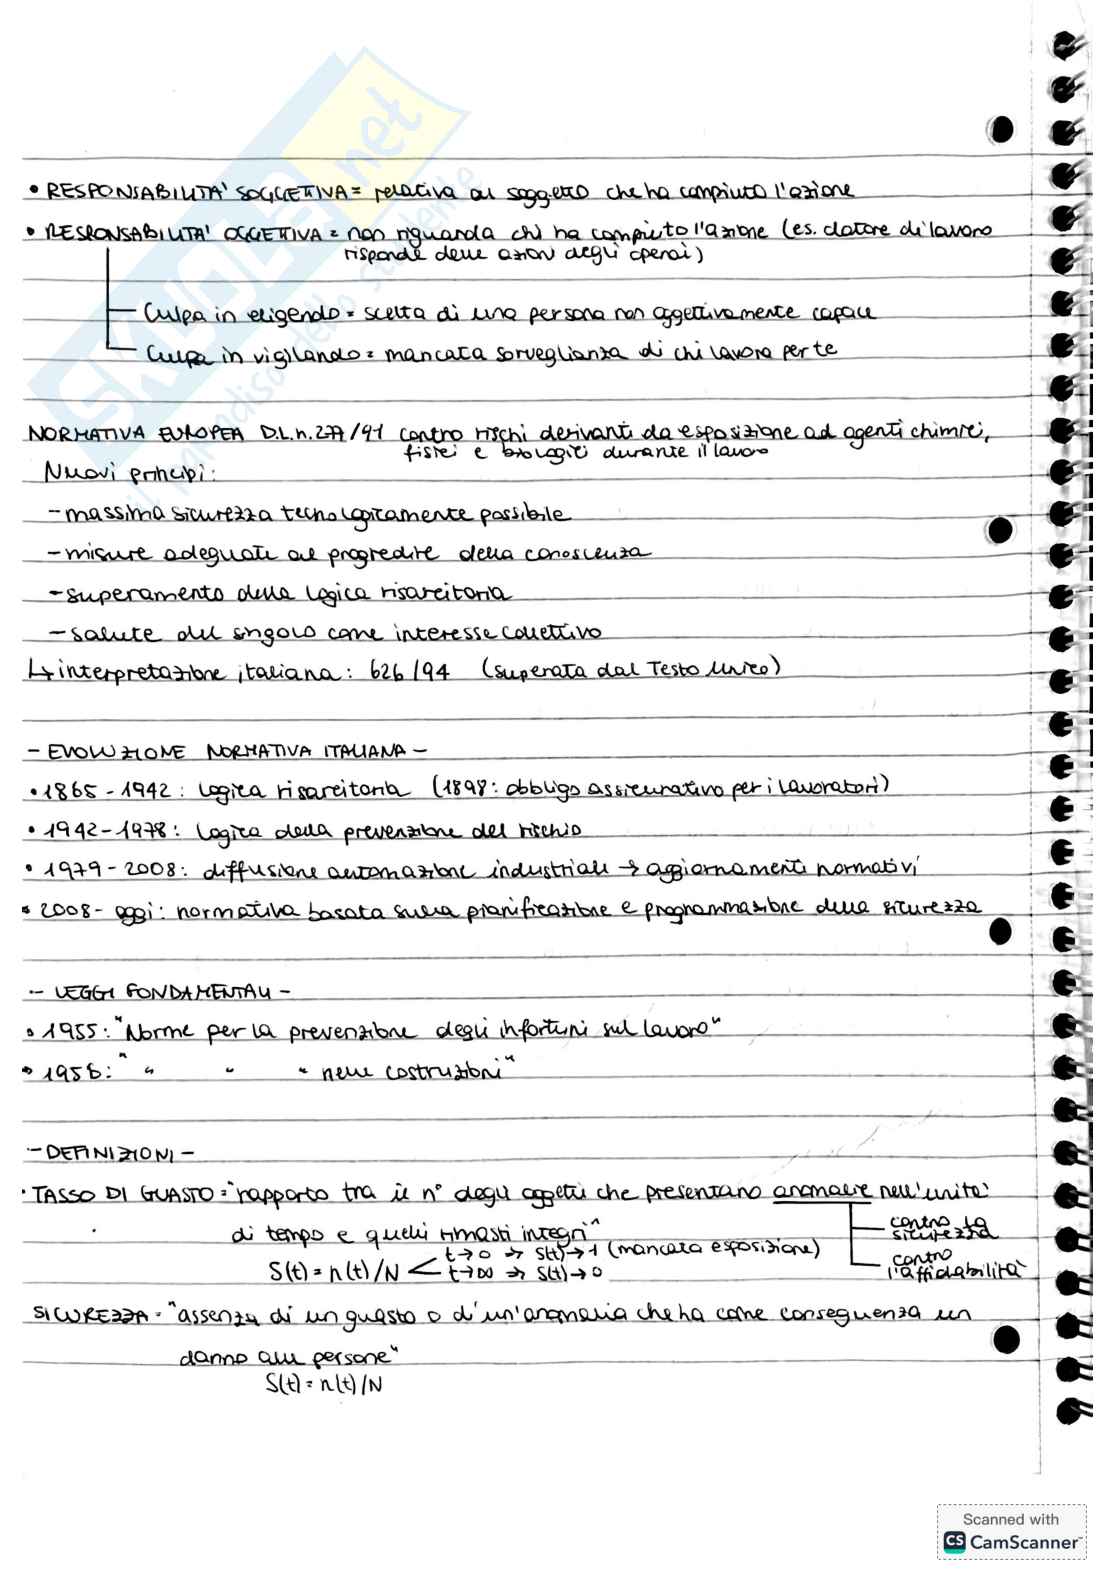 • RESPONSABILITA' SOGGETTIVA = relativa al soggetto che ha compiuto l'azione
• RESPONSABILITA' OGGETTIVA = non riguarda chi ha compiuto l'azione (es. datore di lavoro
risponde delle azioni degli operai)
Culpa in eligendo = scelta di una persona non oggettivamente capace
Culpa in vigilando = mancata sorveglianza di chi lavora per te
NORMATIVA EUROPEA D.L. n. 277/91 contro rischi derivanti da esposizione ad agenti chimici,
fisici e biologici durante il lavoro
Nuovi principi:
- massima sicurezza tecnologicamente possibile
- misure adeguate al progredire della conoscenza
- superamento della logica risarcitoria
- salute del singolo come interesse collettivo
↳ interpretazione italiana: 626/94 (superata dal Testo Unico)
- EVOLUZIONE NORMATIVA ITALIANA -
• 1865 - 1942: logica risarcitoria (1898: obbligo assicurativo per i lavoratori)
• 1942 - 1978: logica della prevenzione del rischio
• 1979 - 2008: diffusione automazione industriale → aggiornamenti normativi
• 2008 - oggi: normativa basata sulla pianificazione e programmazione della sicurezza
- LEGGI FONDAMENTALI -
• 1955: "Norme per la prevenzione degli infortuni sul lavoro"
• 1956: " " " " nelle costruzioni"
- DEFINIZIONI -
• TASSO DI GUASTO = "rapporto tra il n° degli oggetti che presentano anomalie nell'unità
di tempo e quelli rimasti integri"
contro la sicurezza
contro l'affidabilità
S(t) = n(t)/N < t→0 ⇒ S(t)→1 (mancata esposizione)
t→∞ ⇒ S(t)→0
SICUREZZA = "assenza di un guasto o d'un'anomalia che ha come conseguenza un
danno alle persone"
S(t) = n(t)/N
SKUOLA.net
il paradiso dello studente
Scanned with
CS CamScanner